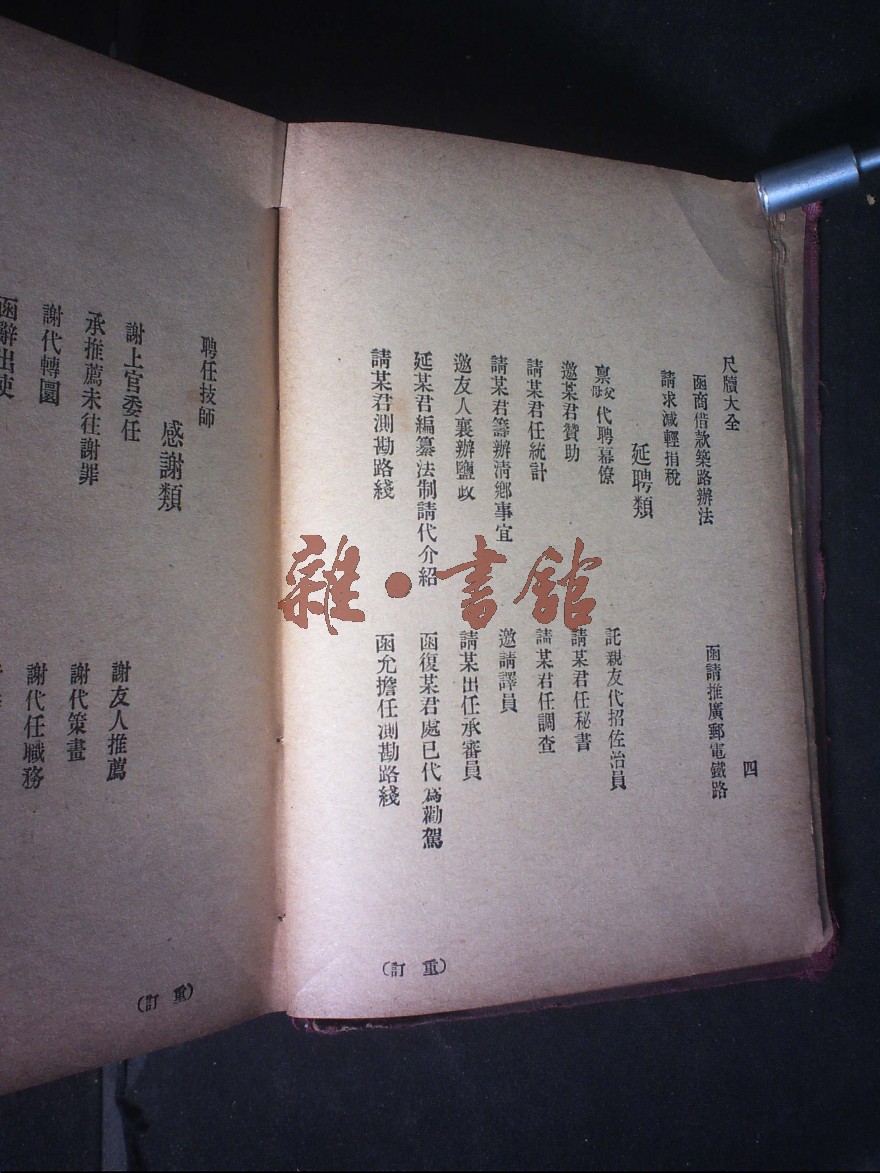 尺牘大全
四
函商借款築路辦法
函請推廣郵電鐵路
請求減輕捐稅
延聘類
稟父母代聘幕僚
託親友代招佐治員
邀某君贊助
請某君任秘書
請某君任統計
請某君任調查
請某君籌辦清鄉事宜
邀請譯員
邀友人襄辦鹽政
請某出任承審員
延某君編纂法制請代介紹
函復某君處已代為勸駕
請某君測勘路綫
函允擔任測勘路綫
(重訂)
聘任技師
感謝類
謝上官委任
謝友人推薦
承推薦未往謝罪
謝代策畫
謝代轉圜
謝代任職務
函辭出使
(重訂)
雜·書館